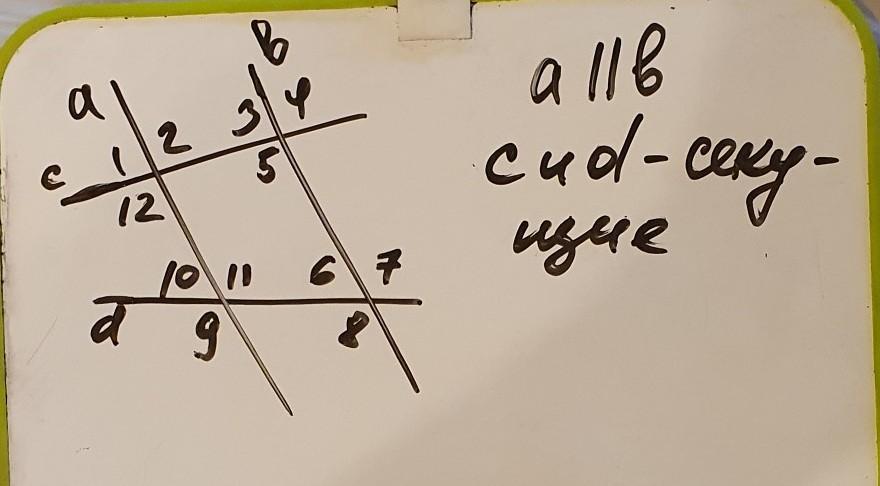 b
a
a || b
3 4
1 2
c
5
c и d - секу-
12
щие
10 11 6 7
d
9 8